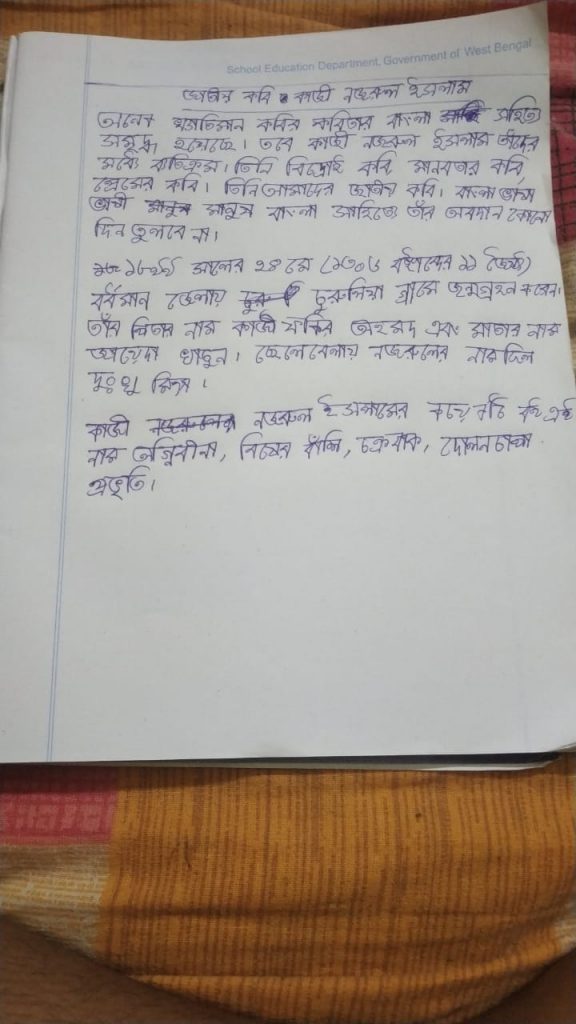 School Education Department, Government of West Bengal
জাতীয় কবি কাজী নজরুল ইসলাম
অনেক খ্যাতিমান কবির কবিতায় বাংলা সাহিত্য
সমৃদ্ধ হয়েছে। তবে কাজী নজরুল ইসলাম তাঁদের
মধ্যে ব্যতিক্রম। তিনি বিদ্রোহি কবি, মানবতার কবি,
প্রেমের কবি। তিনি আমাদের জাতীয় কবি। বাংলা ভাষা
ভাষী মানুষ বাংলা সাহিত্যে তাঁর অবদান কোনো
দিন ভুলবে না।
১৮৯৯ সালের ২৪ মে (১৩০৬ বঙ্গাব্দের ১১ জৈষ্ঠ্য)
বর্ধমান জেলায় চুরুলিয়া গ্রামে জন্মগ্রহন করেন।
তাঁর পিতার নাম কাজী ফকির আহমদ এবং মাতার নাম
জায়েদা খাতুন। ছেলেবেলায় নজরুলের নাম ছিল
দুঃখু মিয়া।
কাজী নজরুল ইসলামের কয়েকটি বই এর
নাম অগ্নিবীনা, বিষের বাঁশি, চক্রবাক, দোলনচাঁপা
প্রভৃতি।